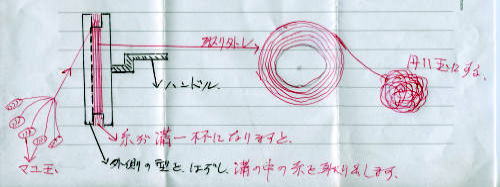 取り外し
円い玉にする。
ハンドル
糸が溝一杯になりますと、
マユ玉
外側の型を、はずし、溝の中の糸を取り出します。